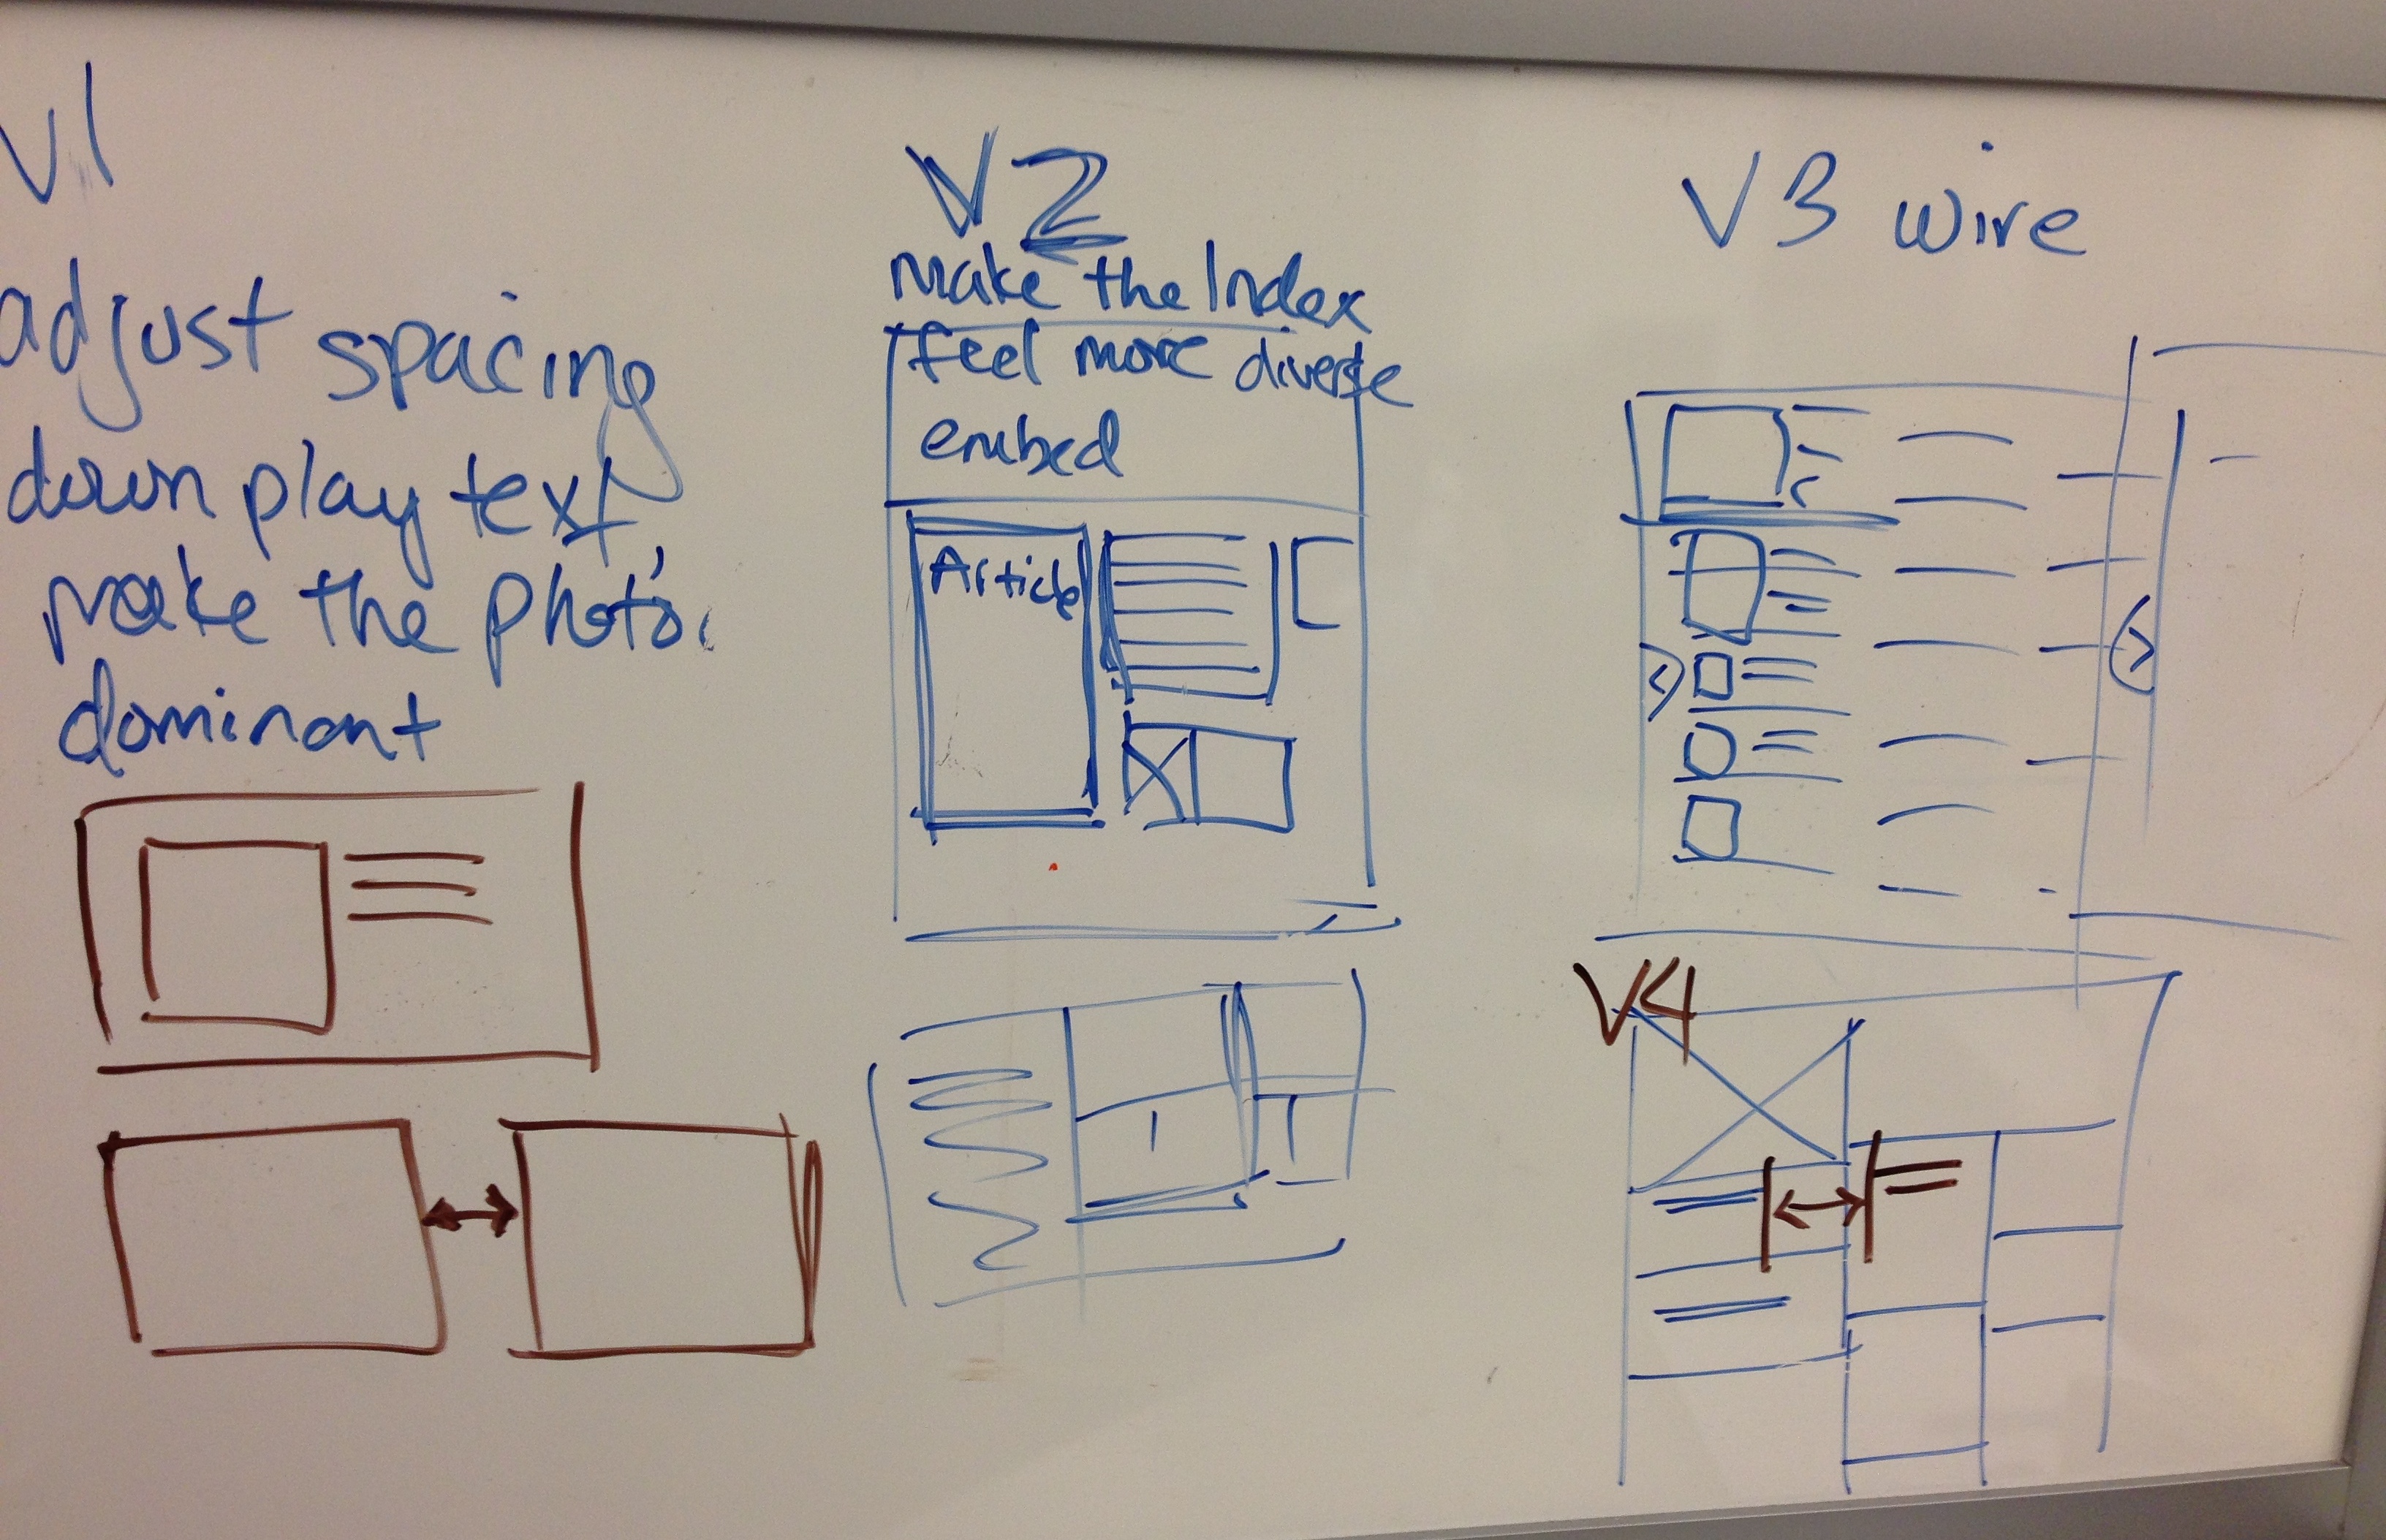 V1
adjust spacing
down play text,
make the photo
dominant
V2
make the Index
feel more diverse
embed
Article
V3 wire
V4